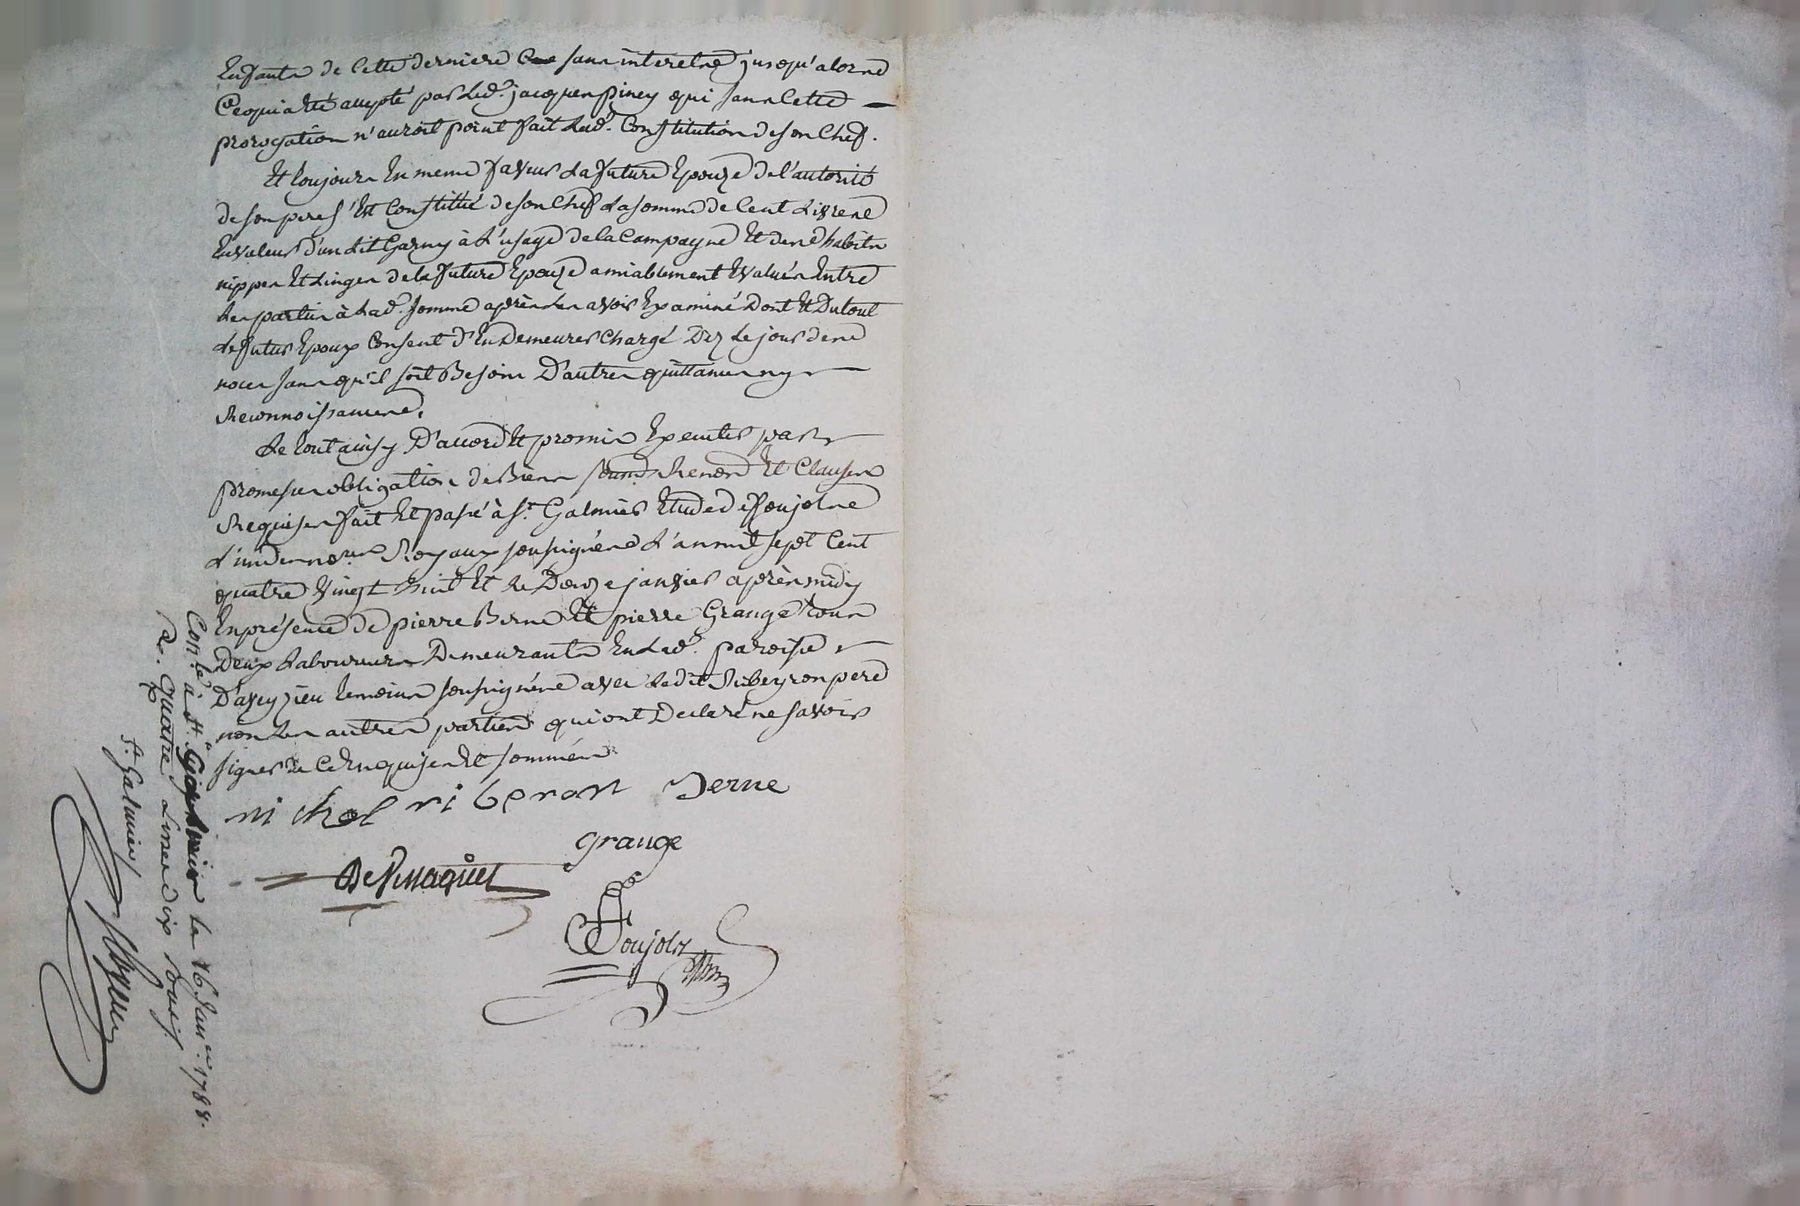 Enfants de cette derniere et sans interets jusqu'alors
Ce qui a été accepté par led. jacques Piney qui sans cette
prorogation n'auroit point fait lad.e Constitution de son Chef.
Et toujours En meme faveur La future Epouze de l'autorité
de son pere s'Est Constitué de son Chef La somme de Cent Livres
En valeur d'un Lit Garny à L'usage de la Campagne Et des habits
nippes Et Linges de la future Epouze amiablement Evalués Entre
Les parties à Lad.e somme après Les avoir Examiné Dont Et Du tout
Le futur Epoux Consent d'En Demeurer Chargé Dez Le jour des
noces sans qu'il soit Besoin D'autres quittances ny
Reconnoissances.
Le tout ainsy D'accord Et promis Executer par
promesses obligation de Biens Et Clauses
Requises fait Et passé à St. Galmier Etude de foujols
L'un des nores. Royaux soussignés L'an mil sept Cent
quatre Vingt huit Et Le Douze janvier après midy
En présence de pierre Berne Et pierre Grange tous
Deux Laboureurs Demeurants En Lad.e paroisse
D'aveyzieu temoins soussignés avec Ledit Riberon pere
non Les autres parties qui ont Declaré ne savoir
signer de Ce Enquises Et sommés
michel riberon Berne
grange
foujols
Con.lé à St. Galmier le 16 Janv. 1788.
R. quatre Livres dix sous
St. Galmier